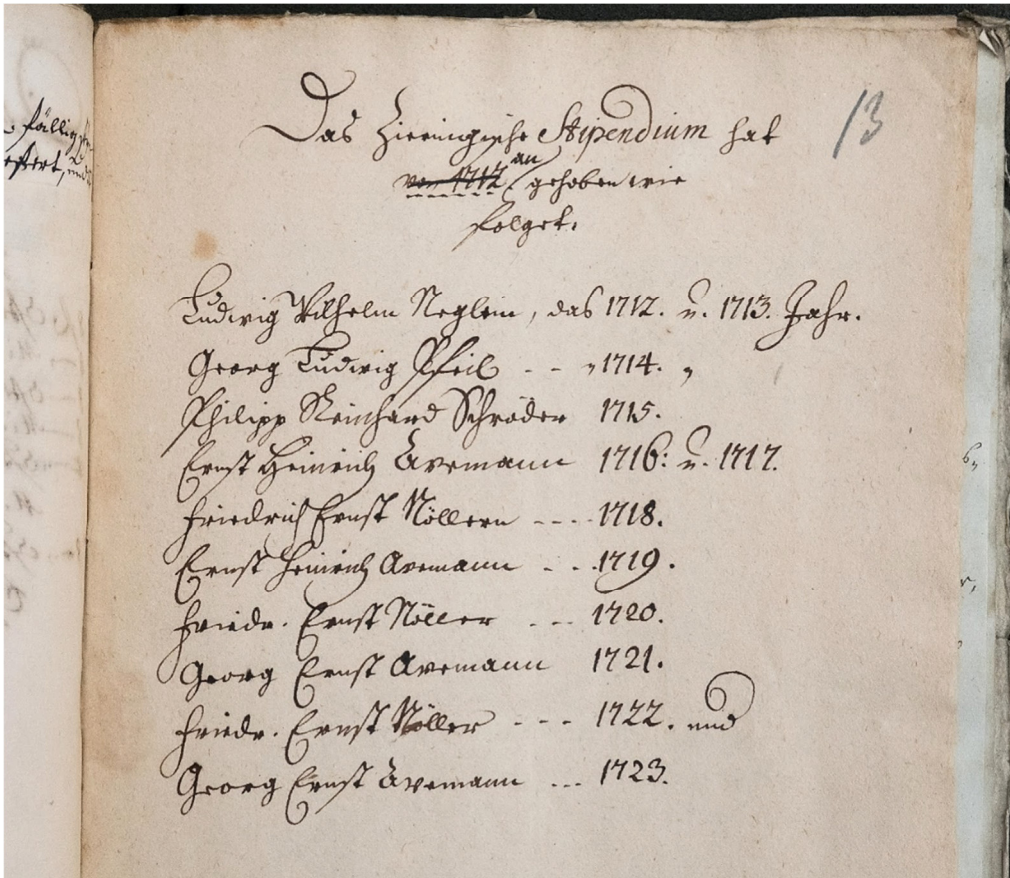 13
Das Zieringische Stipendium hat
von 1712 an gehoben wie
folget.
Ludwig Wilhelm Neglein, das 1712. u. 1713. Jahr.
Georg Ludwig Pfeil - - „ 1714. „
Philipp Reinhard Schröder 1715.
Ernst Heinrich Avemann 1716. u. 1717.
Friedrich Ernst Nöllern - - - 1718.
Ernst Heinrich Avemann - - . 1719.
Friedr. Ernst Nöller - - - 1720.
Georg Ernst Avemann 1721.
Friedr. Ernst Nöller - - - 1722. und
Georg Ernst Avemann ... 1723.
fällig